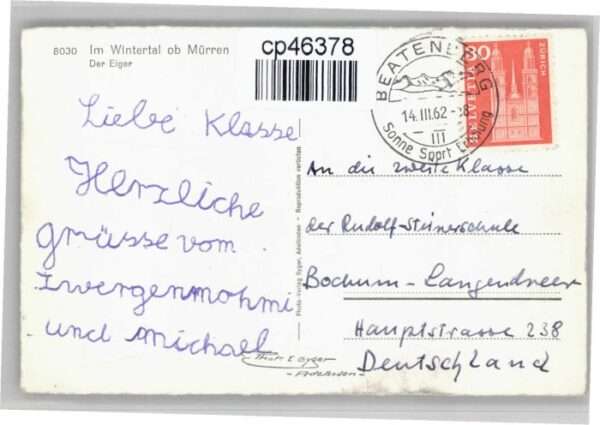 8030 Im Wintertal ob Mürren
Der Eiger
cp46378
BEATENBERG
14.III.62 -18
III
Sonne Sport Erholung
30
ZÜRICH
HELVETIA
Liebe Klasse
Herzliche
grüsse vom
Zwergenmohmi
und Michael
Photo-Verlag Gyger, Adelboden - Reproduktion verboten
An die zweite Klasse
der Rudolf-Steinerschule
Bochum-Langendreer
Hauptstrasse 238
Deutschland
Gyger
Adelboden